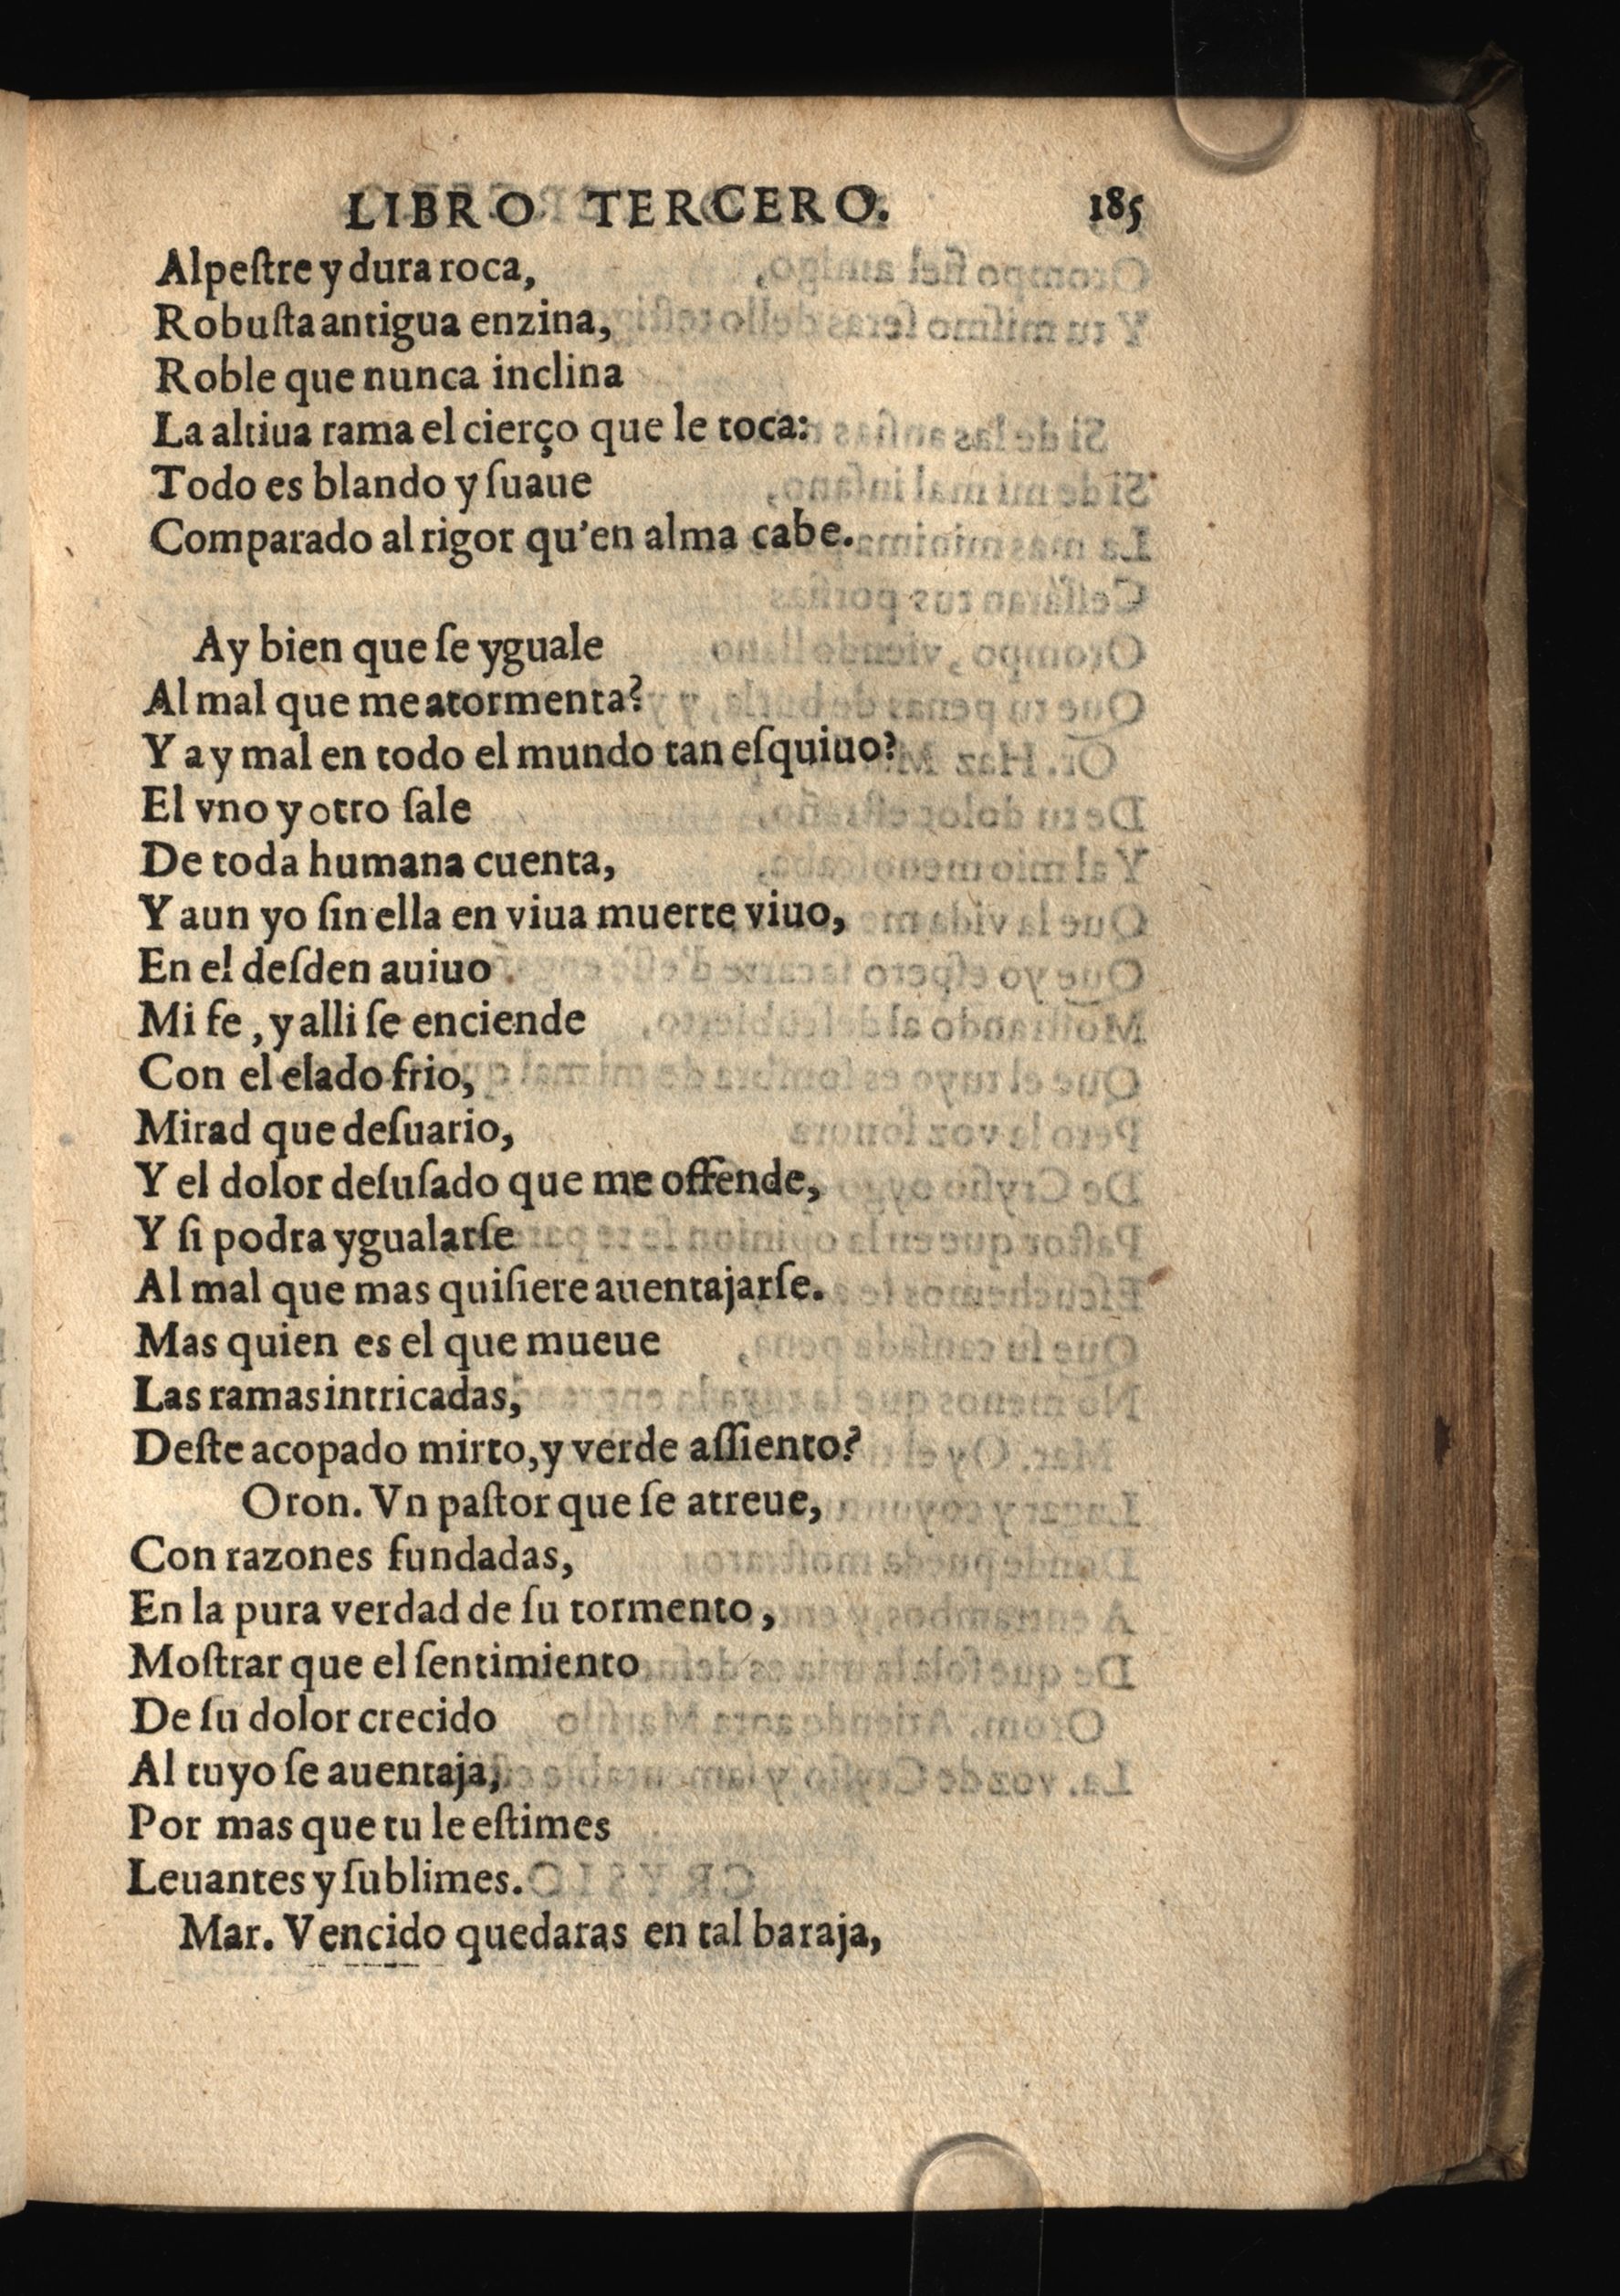 LIBRO TERCERO. 185
Alpeſtre y dura roca,
Robuſta antigua enzina,
Roble que nunca inclina
La altiua rama el cierço que le toca:
Todo es blando y ſuaue
Comparado al rigor qu'en alma cabe.
Ay bien que ſe yguale
Al mal que me atormenta?
Y ay mal en todo el mundo tan eſquiuo?
El vno y otro ſale
De toda humana cuenta,
Y aun yo ſin ella en viua muerte viuo,
En el deſden auiuo
Mi fe, y alli ſe enciende
Con el elado frio,
Mirad que deſuario,
Y el dolor deſuſado que me offende,
Y ſi podra ygualarſe
Al mal que mas quiſiere auentajarſe.
Mas quien es el que mueue
Las ramas intricadas,
Deſte acopado mirto, y verde aſſiento?
Oron. Vn paſtor que ſe atreue,
Con razones fundadas,
En la pura verdad de ſu tormento,
Moſtrar que el ſentimiento
De ſu dolor crecido
Al tuyo ſe auentaja,
Por mas que tu le eſtimes
Leuantes y ſublimes.
Mar. Vencido quedaras en tal baraja,